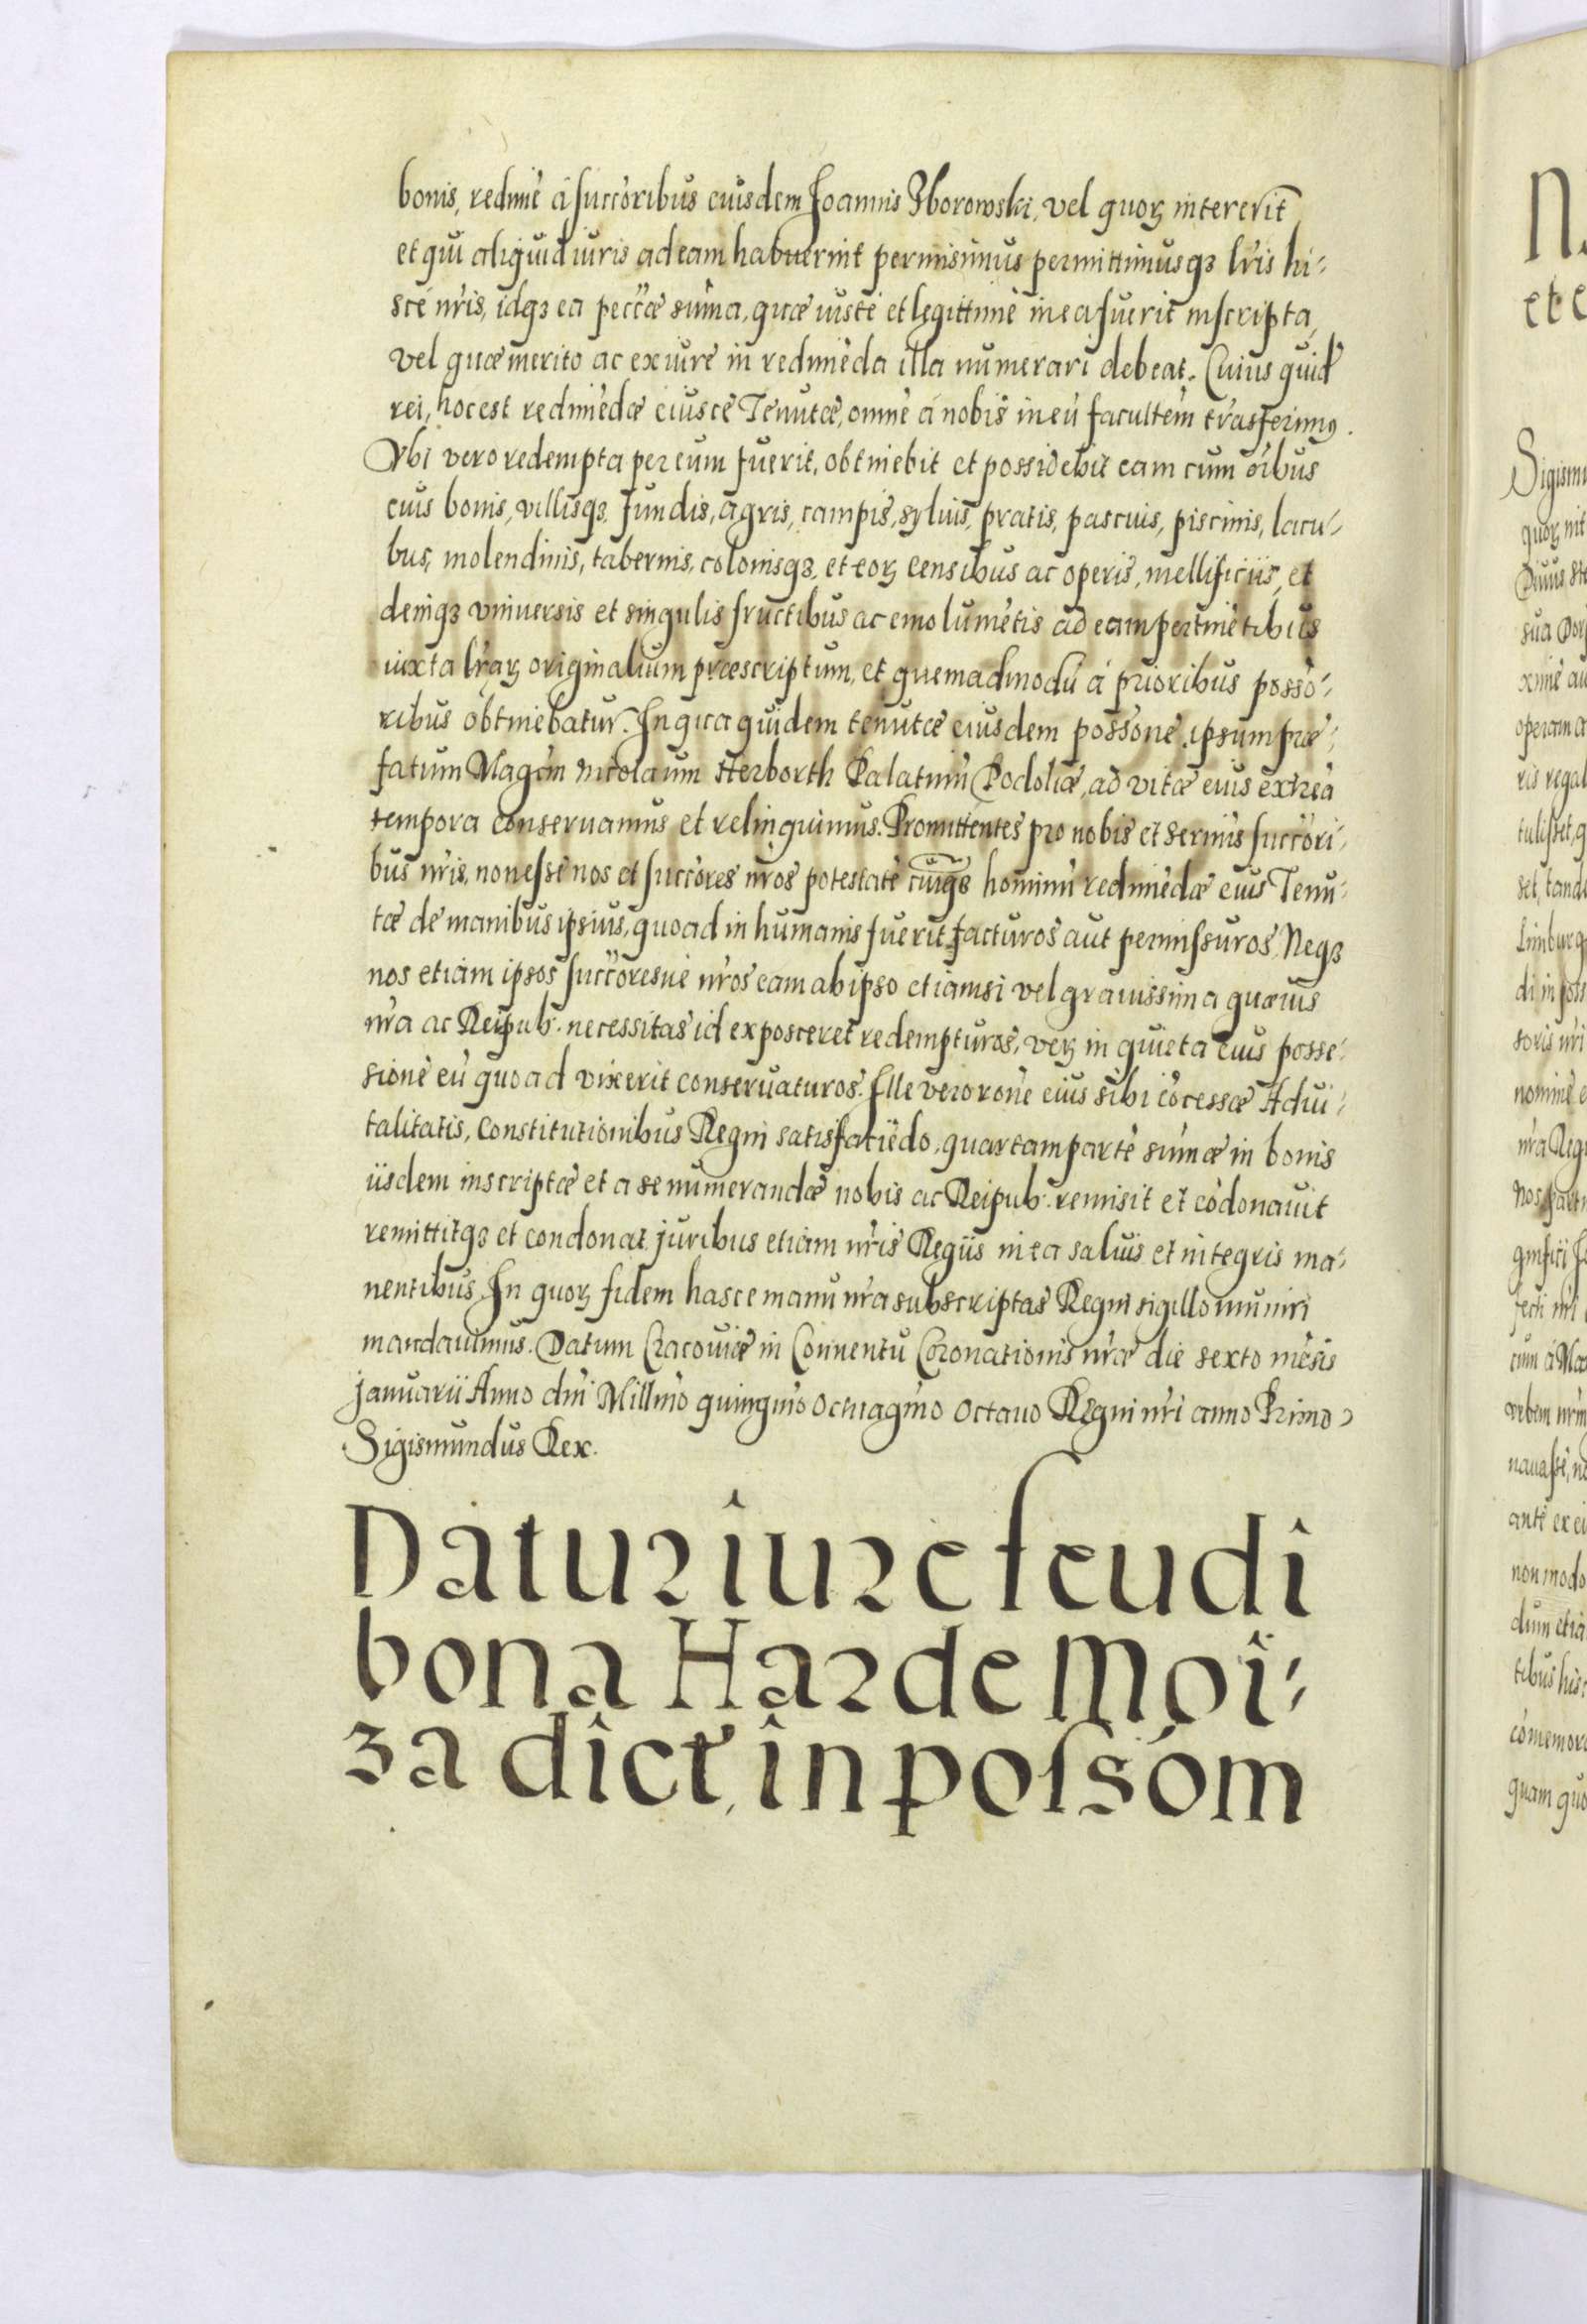 bonis, redimē à succōribus euisdem Joannis Zborowski, vel quoꝝ intererit
et qui aliquid iuris ad eam habuerint permisimus permittimusqȝ lr̄is hi-
sce nr̄is, idqȝ ea pecc̄æ sum̄a, quæ iuste et legittime in ea fuerit inscripta,
vel quæ merito ac ex iure in redimēda illa numerari debeat. Cuius quid̄
rei, hoc est redimēdæ eiusce Tenutæ, omnē à nobis in eū facultēm trāsferimꝰ.
Vbi vero redempta per eum fuerit, obtinebit et possidebit eam cum oībus
euis bonis, villisqȝ fundis, agris, campis, syluis, pratis, pascuis, piscinis, lacu-
bus, molendinis, tabernis, colonisqȝ, et eoꝝ censibus ac operis, mellificiis, et
deniqȝ vniuersis et singulis fructibus ac emolumētis ad eam pertinētibus
iuxta lr̄aꝝ originalium præscriptum, et quemadmodū à prioribus possō-
ribus obtinebatur. In qua quidem tenutæ eiusdem possōne, ipsum præ-
fatum Magc̄m Nicolaum Herborth Palatinū Podoliæ, ad vitæ eius extrēa
tempora conseruamus et relinquimus. Promittentes pro nobis et Serm̄is succōri-
bus nr̄is, non esse nos et succōres nr̄os potestatē cuiqȝ hominū redimēdæ eius Tenu-
tæ de manibus ipsius, quoad in humanis fuerit, facturos aut permissuros. Neqȝ
nos etiam ipsos succōresue nr̄os eam ab ipso etiamsi vel grauissima quæuis
nr̄a ac Reipub. necessitas id exposceret redempturos, veꝝ in quieta euis posse-
sionē eū quoad vixerit conseruaturos. Ille vero rōne eius sibi cōcessæ Adui-
talitatis, Constitutionibus Regni satisfaciēdo, quartam partē sum̄æ in bonis
iisdem inscriptæ et a se numerandæ nobis ac Reipub. remisit et cōdonauit
remittitqȝ et condonat, juribus etiam nr̄is Regiis in ea saluis et integris ma-
nentibus. In quoꝝ fidem hasce manu nr̄a subscriptas Regni sigillo muniri
mandauimus. Datum Cracouiæ in Conuentu Coronationis nr̄æ die sexto mēsis
januarii Anno dn̄i Millm̄o quingm̄o octuagm̄o octauo Regni nr̄i anno Primo
Sigismundus Rex.
Datur iure feudi
bona Harde Moi-
za dict, in possōm